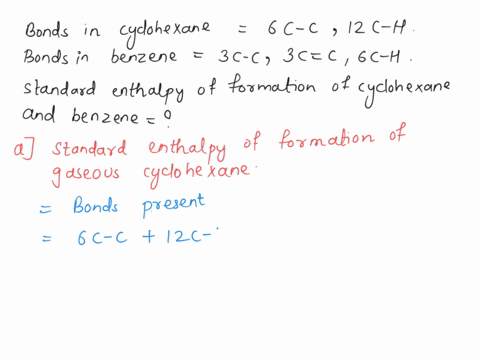 Bonds in cyclohexane = 6C-C, 12C-H.
Bonds in benzene = 3C-C, 3C=C, 6C-H.
Standard enthalpy of formation of cyclohexane
and benzene = ?
a] Standard enthalpy of formation of
gaseous cyclohexane.
= Bonds present
= 6C-C + 12C-